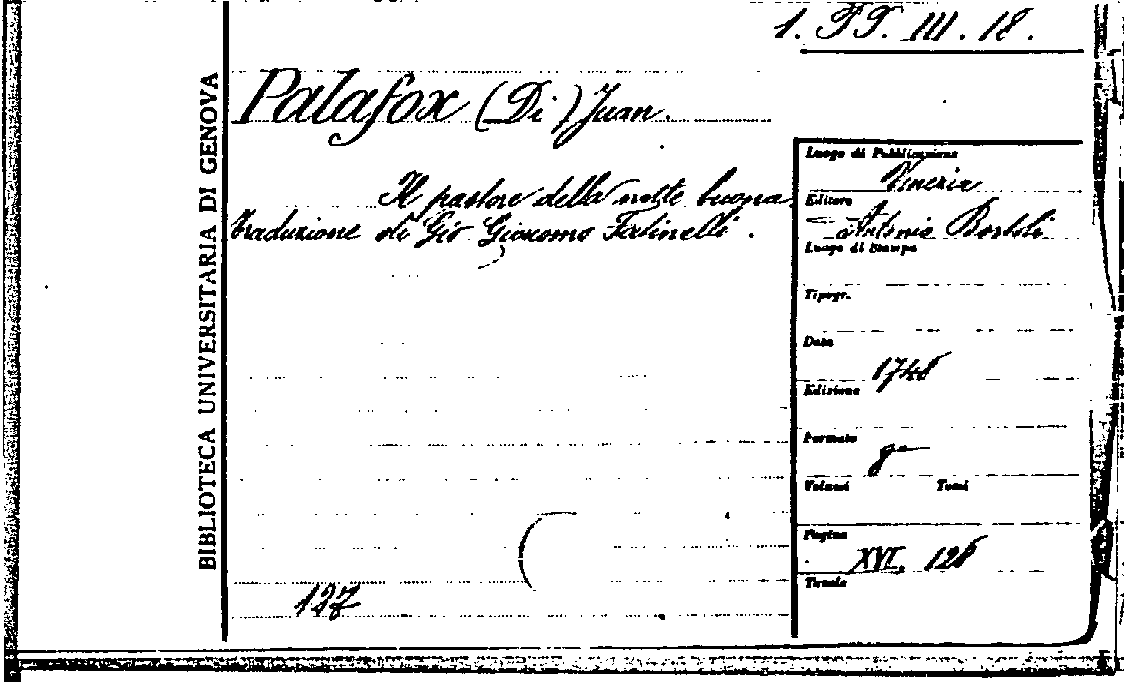 1. FF. III. 18.
BIBLIOTECA UNIVERSITARIA DI GENOVA
Palafox (Di) Juan.
Il pastore della notte buona.
traduzione di Gio Giacomo Fatinelli.
Luogo di Pubblicazione
Venezia
Editore
Antonio Bortoli
Luogo di Stampa
Tipogr.
Data
1748
Edizione
Formato
8º
Volumi Tomi
Pagine
XVI, 128
Tavole
127